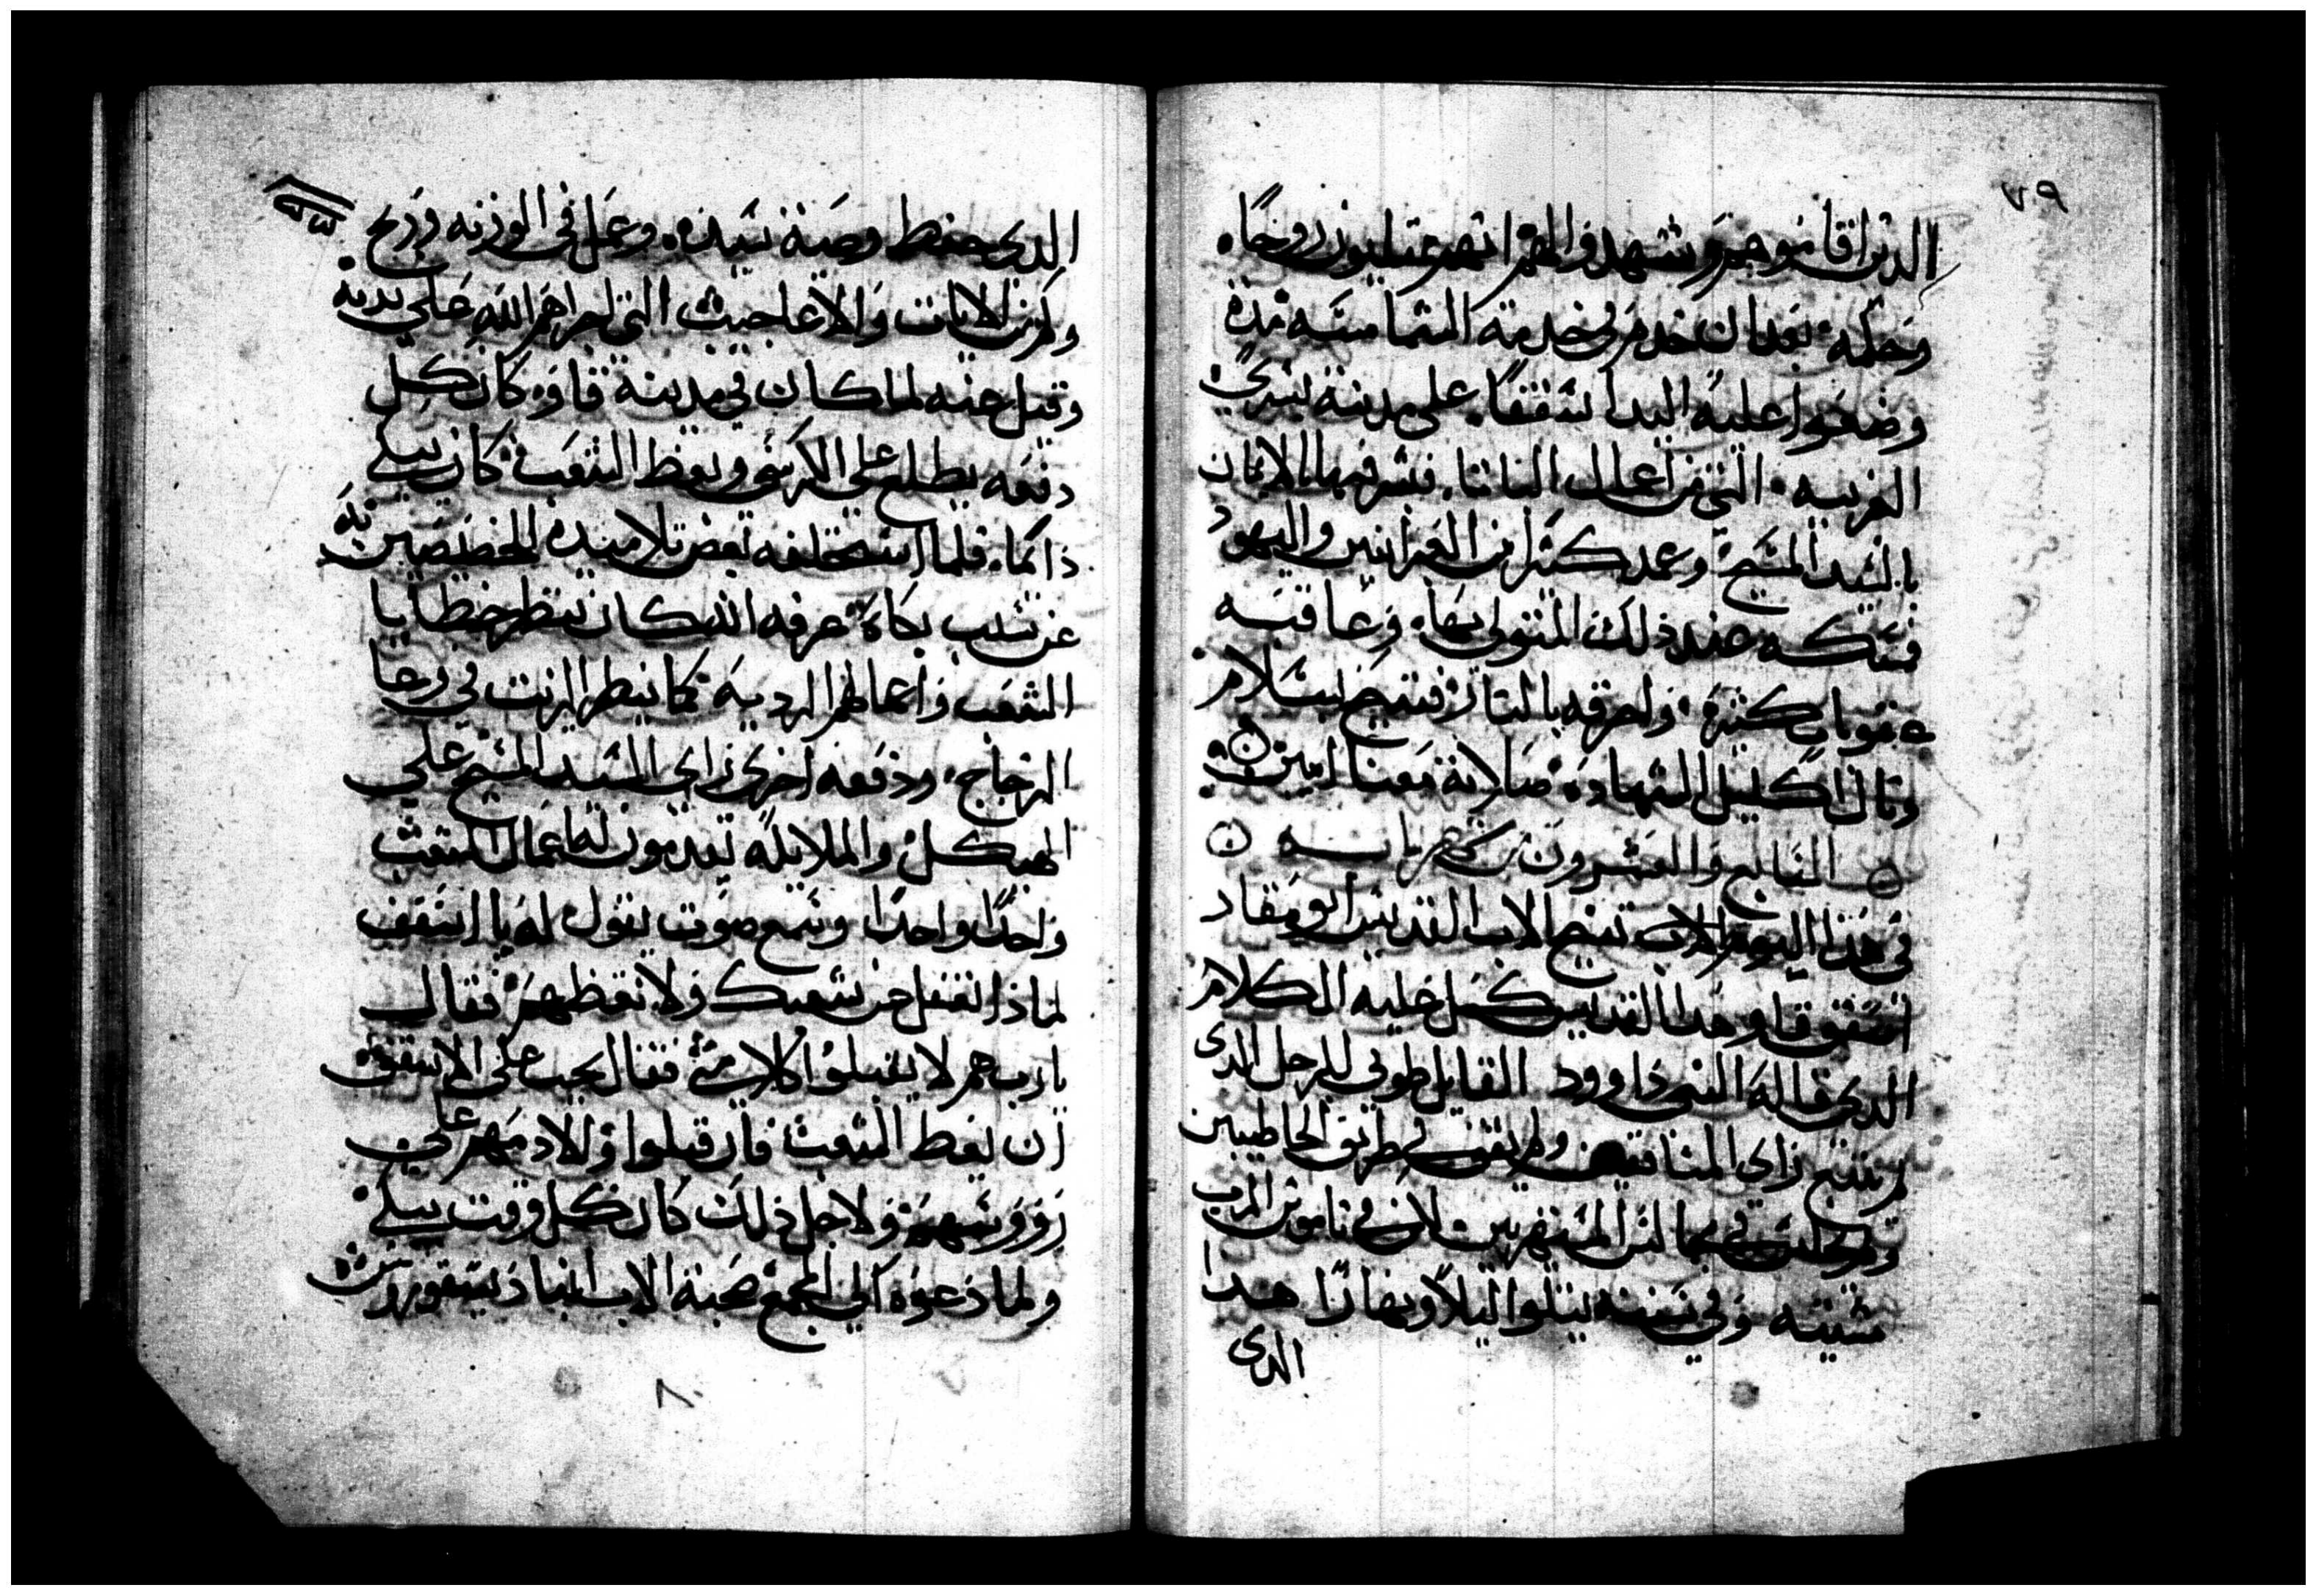 ٧٩
الدين اقاموهم وشهدوا لهم انهم ممتليون روحًا
وحكمه بعد ان خدم في خدمة الشماسه مده
وضعوا عليه اليد اسقفًا على مدينة بسري
الغربيه التي من اعمال البلقا فبشر فيها بالايمان
بالسيد المسيح وعمد كثيرا من اليونانيين واليهود
فمسكه عند ذلك المتولي بها وعاقبه
عقوبات كثيرة واحرقه بالنار فتنيح بسلام
ونال اكليل الشهاده صلاته معنا امين
السابع والعشرون من بابه
في هذا اليوم ايضا تنيح الاب القديس ابو مقار
اسقف قاو هذا القديس كمل عليه الكلام
الدي قاله النبي داوود القايل طوبي للرجل الدي
لم يتبع راي المنافقين ولم يقف في طريق الخاطيين
ولم يجلس في مجالس المستهزيين لان في ناموس الرب
مشيته وفي سننه يتلوا ليلاً ونهارًا هدا
الدي
الدي حفظ وصية سيده وعمل في الوزنه وربح
وكثرت الايات والاعاجيب التي اجراهم الله على يديه
وقيل عنه لما كان في مدينة قاو كان كل
دفعه يطلع على الكرسي ويعظ الشعب كان يبكي
دايما فلما استحلفه بعض تلاميذه المخصصين به
عن سبب بكاه عرفه انه كان ينظر خطايا
الشعب واعمالهم الرديه كما ينظر الزيت في وعا
الزجاج ودفعه اخرى راي السيد المسيح على
الهيكل والملايكه يقدمون له اعمال الشعب
واحدًا واحدًا وسمع صوت يقول له يا اسقف
لماذا تغفل عن شعبك ولا تعظهم فقال
يارب هم لا يقبلوا كلامي فقال يجب على الاسقف
ان يعظ الشعب فان قبلوا والا دمهم على
رووسهم ولاجل ذلك كان كل وقت يبكي
ولما دعوه الي المجمع صحبة الاب انبا ديسقورس
٨٠